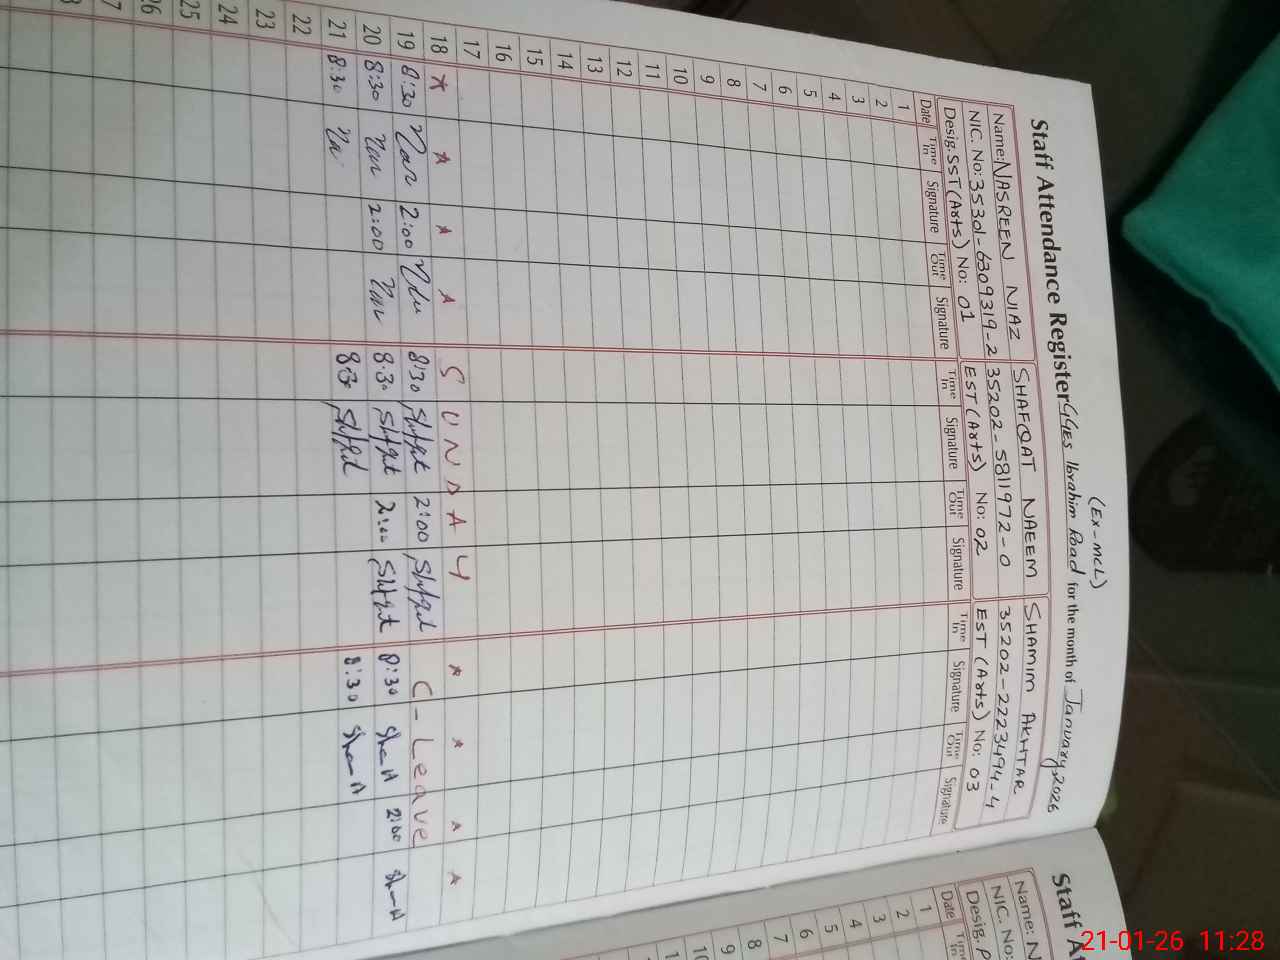 (Ex-MCL)
Staff Attendance Register GGES Ibrahim Road for the month of January, 2026
Name: NASREEN NIAZ SHAFQAT NAEEM SHAMIM AKHTAR
NIC. No: 35301-6309319-2 35202-5811972-0 35202-2223494-4
Desig. SST (Arts) No: 01 EST (Arts) No: 02 EST (Arts) No: 03
Date Time In Signature Time Out Signature Time In Signature Time Out Signature Time In Signature Time Out Signature
1
2
3
4
5
6
7
8
9
10
11
12
13
14
15
16
17
18 SUNDAY
19 8:30 2:00 8:30 2:00 C-Leave
20 8:30 2:00 8:30 2:00 8:30 2:00
21 8:30 8:30 8:30
22
23
24
25
26
Staff
Name: N
NIC. No:
Desig. P
Date
1
2
3
4
5
6
7
8
9
10
21-01-26 11:28